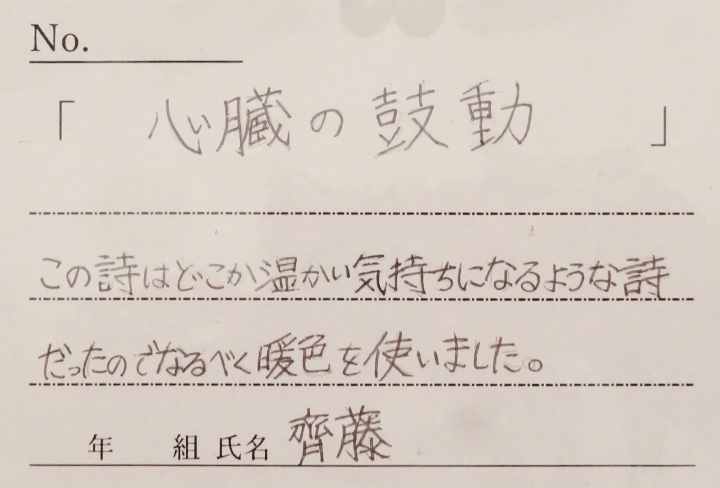 No.
「 心臓の鼓動 」
この詩はどこか温かい気持ちになるような詩
だったのでなるべく暖色を使いました。
年 組 氏名 齊藤